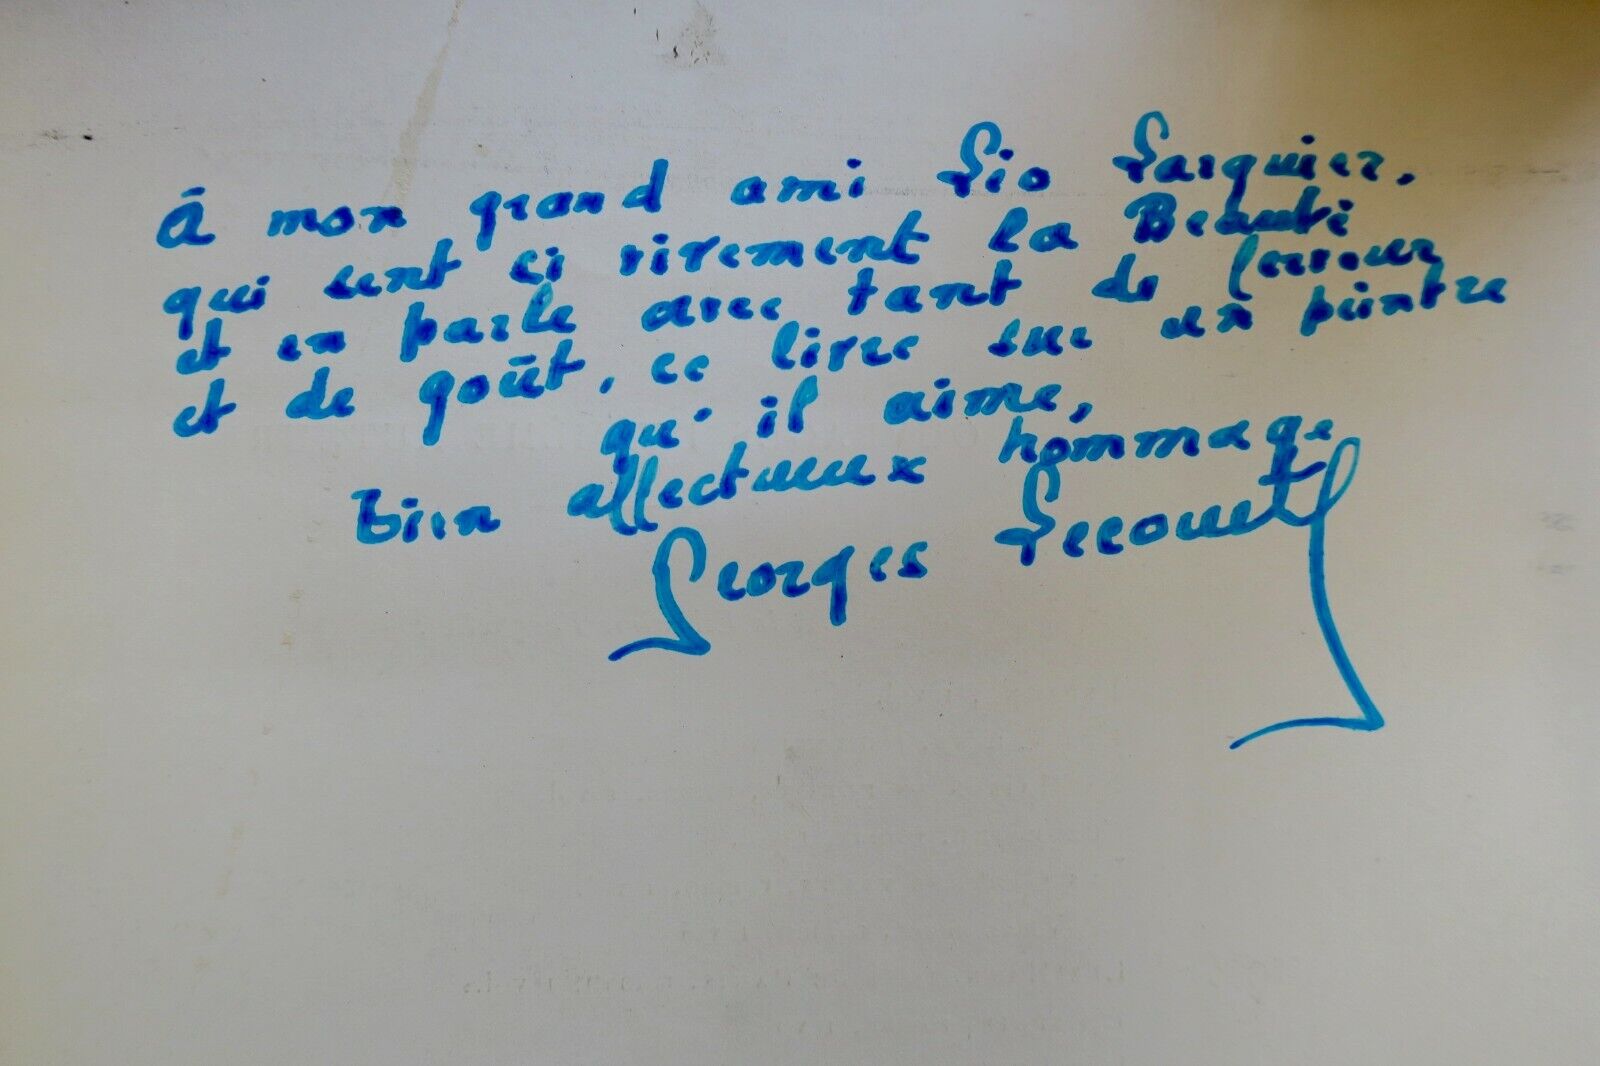 À mon grand ami Léo Larguier,
qui sent si vivement la Beauté
et en parle avec tant de ferveur
et de goût, ce livre sur un peintre
qu'il aime,
bien affectueux hommage
Georges Lecomte